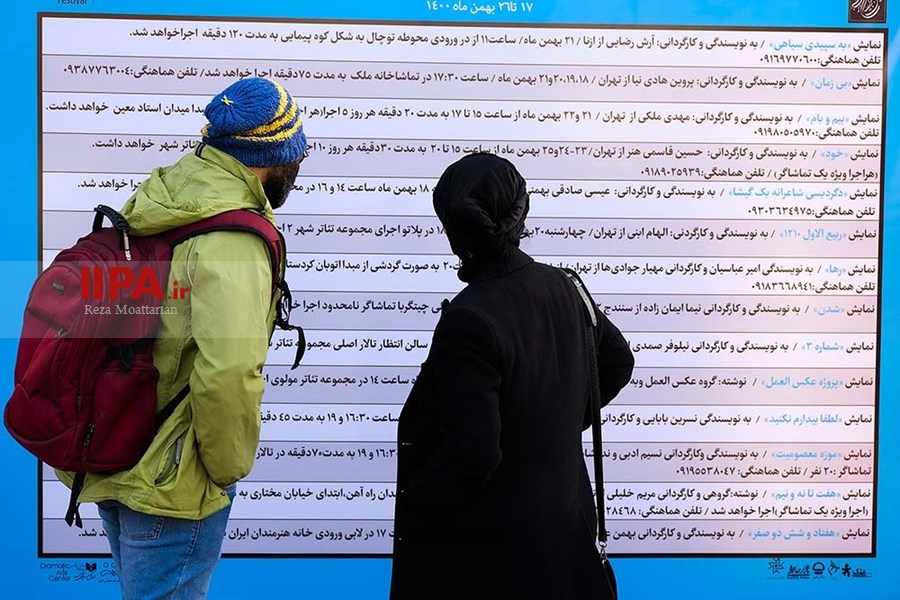 Festival
۱۷ تا ۲۶ بهمن ماه ۱۴۰۰
نمایش «به سپیدی سیاهی» / به نویسندگی و کارگردانی: آرش رضایی از ازنا / ۲۱ بهمن ماه/ ساعت۱۱ از در ورودی محوطه توچال به شکل کوه پیمایی به مدت ۱۲۰ دقیقه اجراخواهد شد.
تلفن هماهنگی:۰۹۱۶۹۷۷۰۶۰۰
نمایش «بی زمان» / به نویسندگی و کارگردانی: پروین هادی نیا از تهران / ۲۰،۱۹،۱۸و۲۱ بهمن ماه / ساعت ۱۷:۳۰ در تماشاخانه ملک به مدت ۷۵دقیقه اجرا خواهد شد/ تلفن هماهنگی:۰۹۳۸۷۷۶۳۰۰۴
نمایش «بیم و بام» / به نویسندگی و کارگردانی: مهدی ملکی از تهران / ۲۱ و۲۲ بهمن ماه از ساعت ۱۵ تا ۱۷ به مدت ۲۰ دقیقه هر روز ۵ اجرا(هر مبدا میدان استاد معین خواهد داشت.
تلفن هماهنگی:۰۹۱۹۸۰۵۰۵۹۷۰
نمایش «خود» / به نویسندگی و کارگردانی: حسین قاسمی هنر از تهران/ ۲۳-۲۴و۲۵ بهمن ماه از ساعت ۱۵ تا ۲۰ به مدت ۳۰دقیقه هر روز ۱۰ تئاتر شهر خواهد داشت.
(هراجرا ویژه یک تماشاگر) / تلفن هماهنگی:۰۹۱۸۹۰۲۵۹۳۹
نمایش «دگردیسی شاعرانه یک گیشا» / به نویسندگی و کارگردانی: عیسی صادقی بهمنی ۱۸ بهمن ماه ساعت ۱۴ و ۱۶ در خواهد شد.
تلفن هماهنگی:۰۹۳۰۳۶۳۴۹۷۵
نمایش «ربیع الاول ۱۲۱۰» / به نویسندگی و کارگردنی: الهام ابنی از تهران/ چهارشنبه۲۰ ۱۸ در پلاتو اجرای مجموعه تئاتر شهر ۲
نمایش «رها» / به نویسندگی امیر عباسیان و کارگردانی مهیار جوادی‌ها از تهران/ ۲۰ به صورت گردشی از مبدا اتوبان کردستا
تلفن هماهنگی:۰۹۱۸۳۶۶۸۹۴۱
نمایش «شدن» / به نویسندگی و کارگردانی نیما ایمان زاده از سنندج چیتگربا تماشاگر نامحدود اجرا
نمایش «شماره ۳» / به نویسندگی و کارگردانی نیلوفر صمدی سالن انتظار تالار اصلی مجموعه تئاتر
نمایش «پروژه عکس العمل» / نوشته: گروه عکس العمل وبه ساعت ۱۴ در مجموعه تئاتر مولوی
نمایش «لطفا بیدارم نکنید» / به نویسندگی نسرین بابایی و کارگردانی ساعت ۱۶:۳۰ و ۱۹ به مدت ۴۵
نمایش «موزه معصومیت» / به نویسندگی و کارگردانی نسیم ادبی و ۱۶:۳۰ و ۱۹ به مدت۷۰دقیقه در تالار
تماشاگر:۲۰ نفر / تلفن هماهنگی:۰۹۱۹۵۵۳۸۰۴۷
نمایش «هفت تا نه و نیم» / نوشته:گروهی و کارگردانی مریم خلیلی راه آهن،ابتدای خیابان مختاری به
(اجرا ویژه یک تماشاگر)اجرا خواهد شد / تلفن هماهنگی: ۲۸۴۶۸
نمایش «هفتاد و شش دو صفر» / به نویسندگی و کارگردانی بهمن ۱۷ در لابی ورودی خانه هنرمندان ایران شد.
IIPA.ir
Reza Moattarian
Dramatic Arts Center